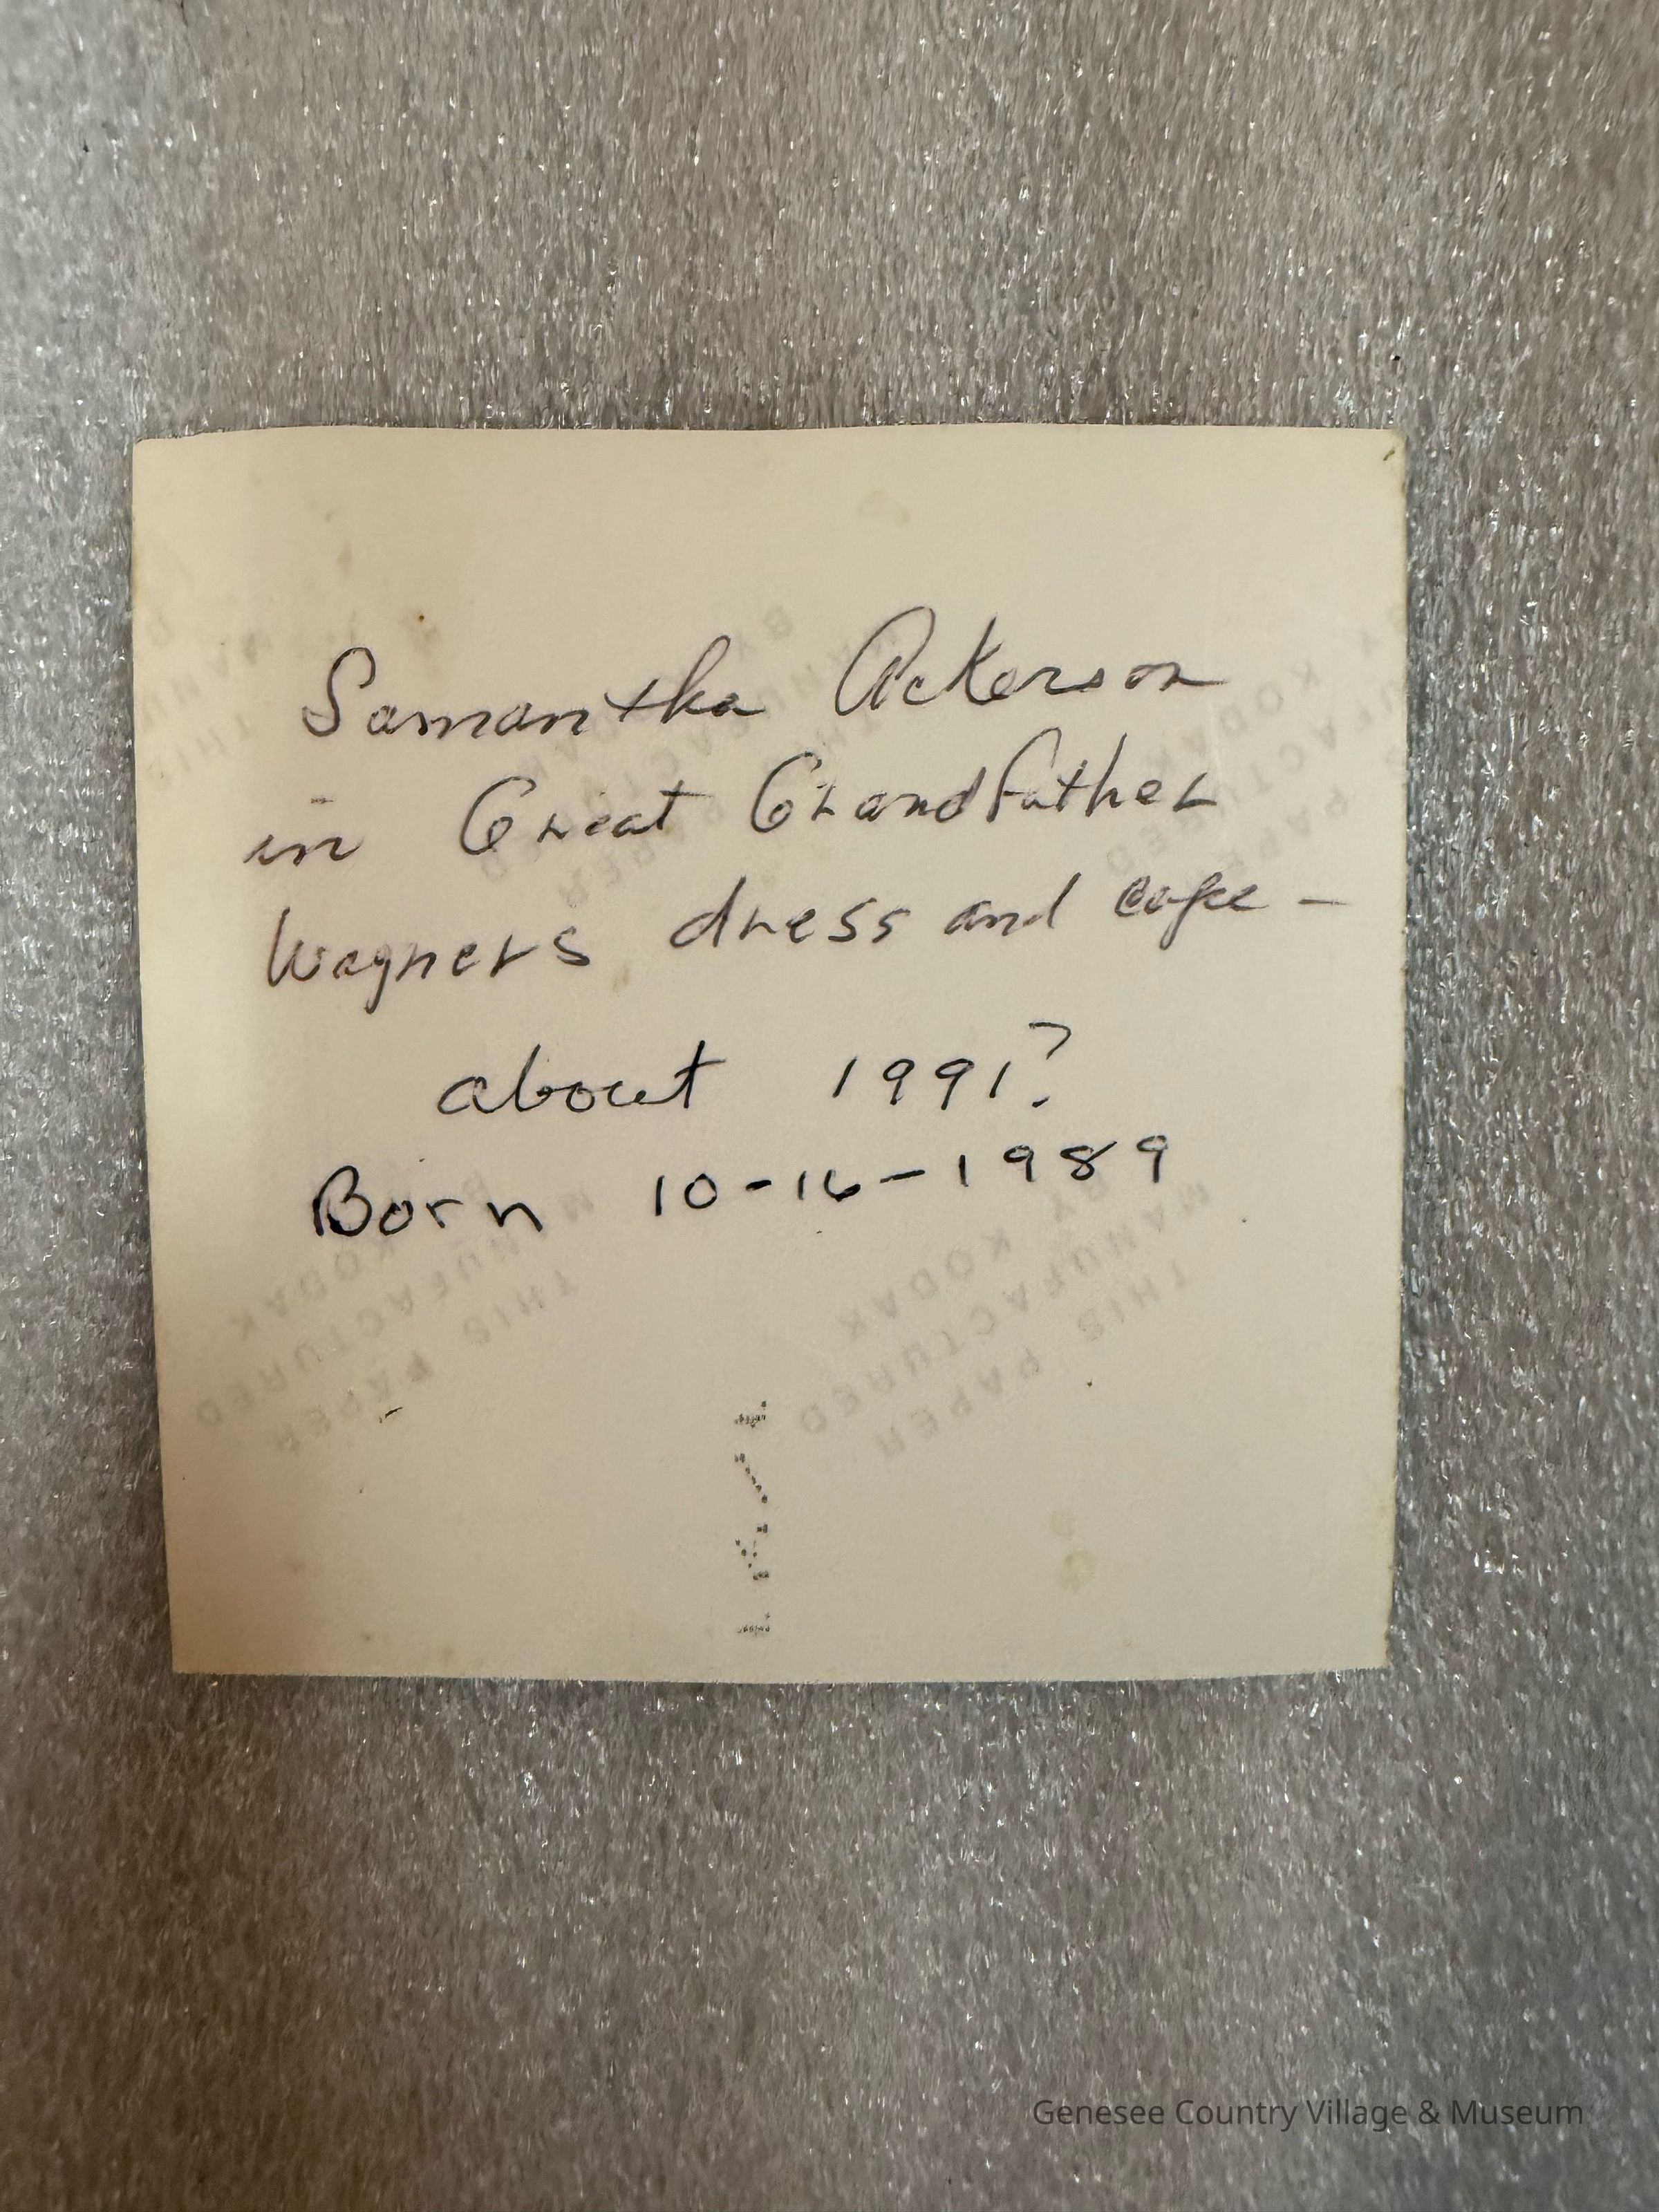 Samantha Ackerson
in Great Grandfather
Wagners dress and cape -
about 1991?
Born 10-16-1989
THIS PAPER
MANUFACTURED
BY KODAK
THIS PAPER
MANUFACTURED
BY KODAK
Genesee Country Village & Museum